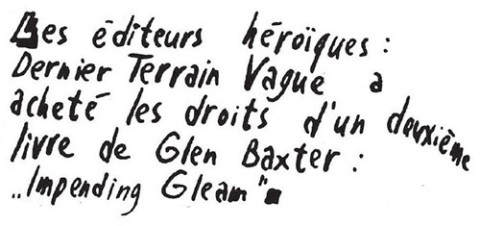 Les éditeurs héroïques :
Dernier Terrain Vague a
acheté les droits d'un deuxième
livre de Glen Baxter :
„Impending Gleam"